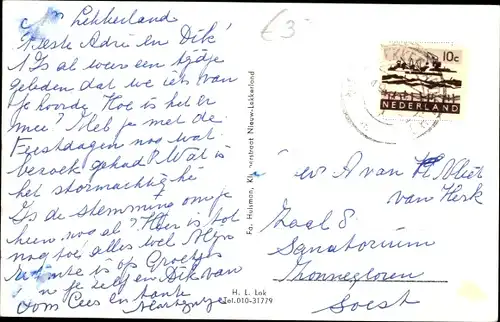 Lekkerland
Beste Adri en Dik
't Is al weer een tijdje
geleden dat we iets van
je hoorde Hoe is het er
mee? Heb je met de
Feestdagen nog wat
bezoek gehad? Wat is
het stormachtig hé
Is de stemming om je
heen nog al? Hier is tot
nog toe alles wel
is op Groetjes
je zelf en Dik van
oom Cees en tante
€3
10c
NEDERLAND
Fa. Huisman, Nieuw-Lekkerland
H. L. Lok
Tel. 010-31779
A van Vliet
van Herk
Zaal 8
Sanatorium
Zonnegloren
Soest